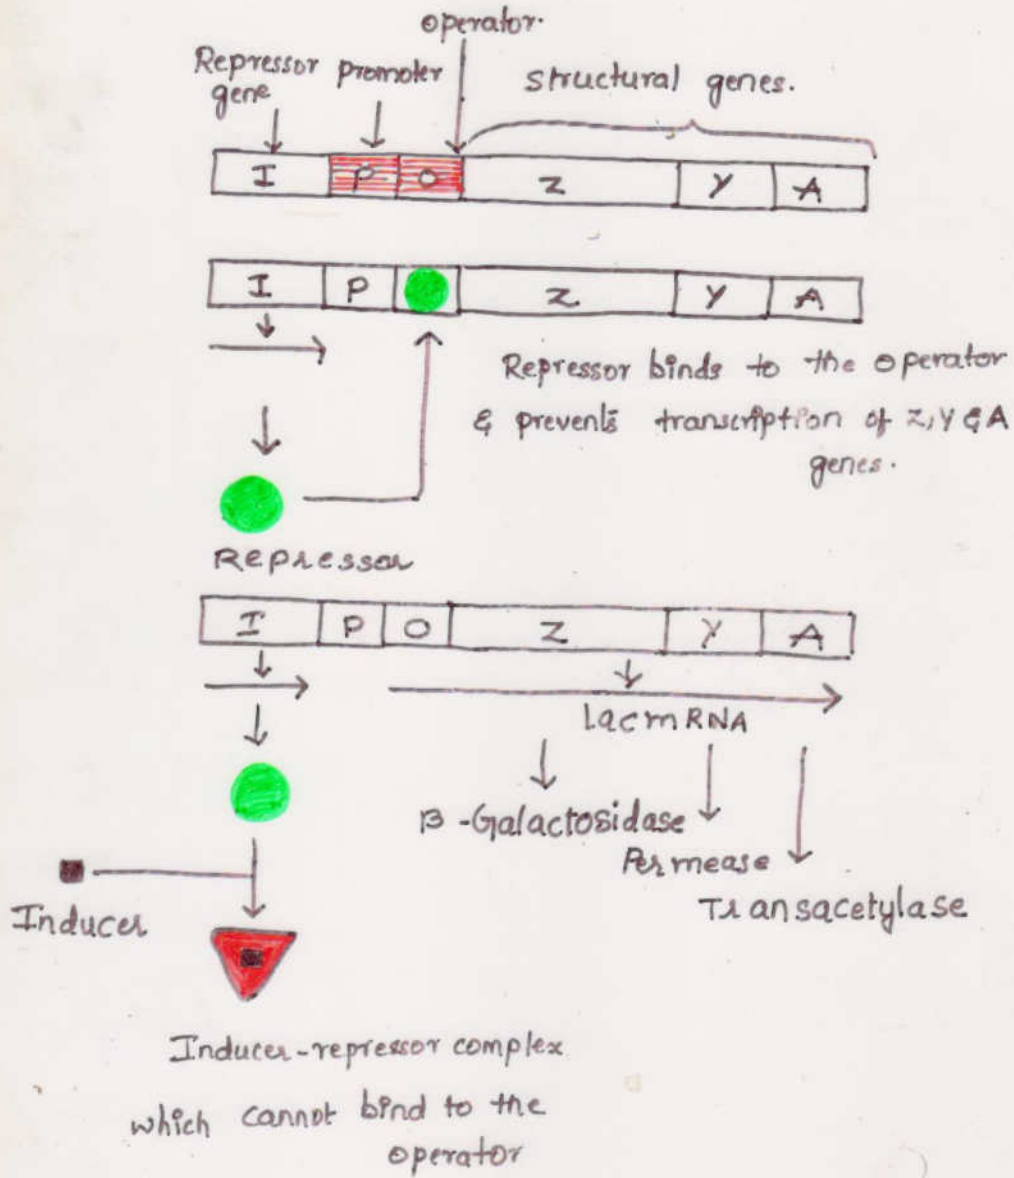 operator.
Repressor promoter
gene
structural genes.
I P O Z Y A
I P Z Y A
Repressor binds to the operator
& prevents transcription of Z, Y & A
genes.
Repressor
I P O Z Y A
lac mRNA
β-Galactosidase
Permease
Transacetylase
Inducer
Inducer-repressor complex
which cannot bind to the
operator